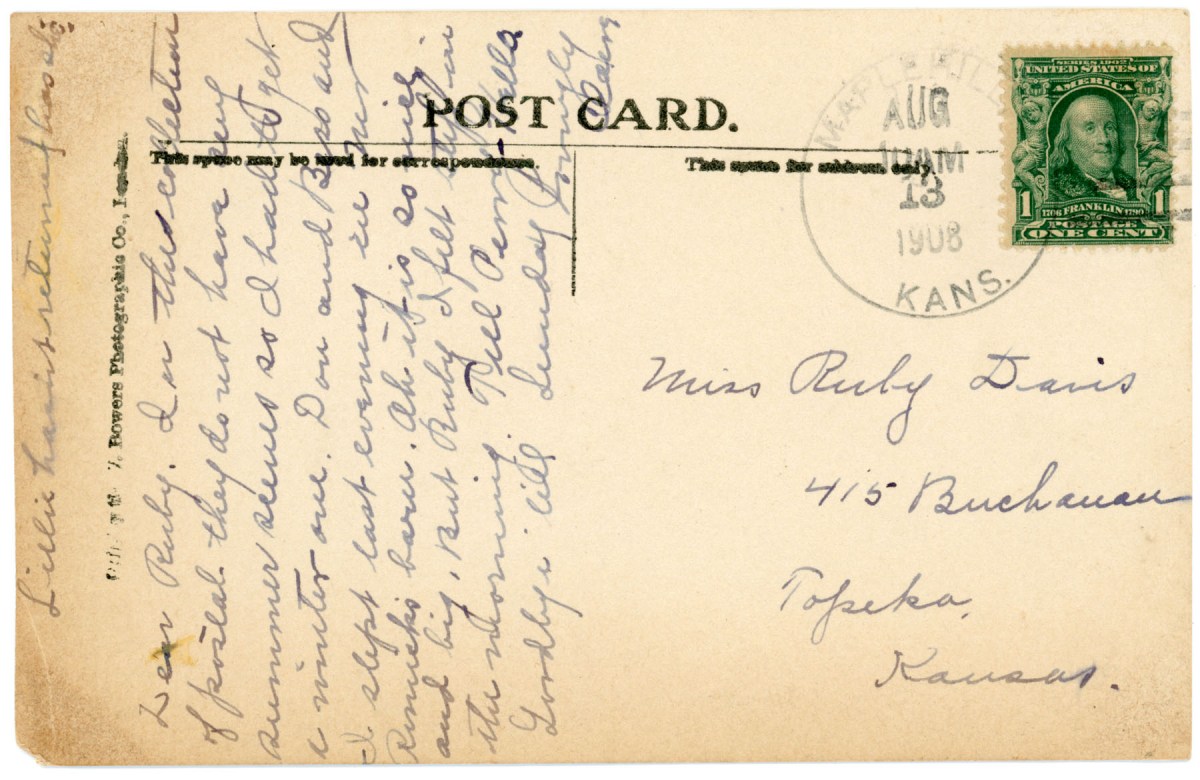 POST CARD.
This space may be used for correspondence.
This space for address only.
AUG
10 AM
13
1908
KANS.
SERIES 1902
UNITED STATES OF
AMERICA
1 1
1706 FRANKLIN 1790
POSTAGE
ONE CENT
Miss Ruby Davis
415 Buchanan
Topeka,
Kansas.
Bowers Photographic Co.,
Dear Ruby. In the collection
of postal they do not have any
summer scenes so I had to get
a winter one. Don and Bess and
I slept last evening in
barn. Oh it is so nice
and big, But Ruby I felt it fine
the morning. Tell hello
Goodby till Sunday Lovingly
haint return